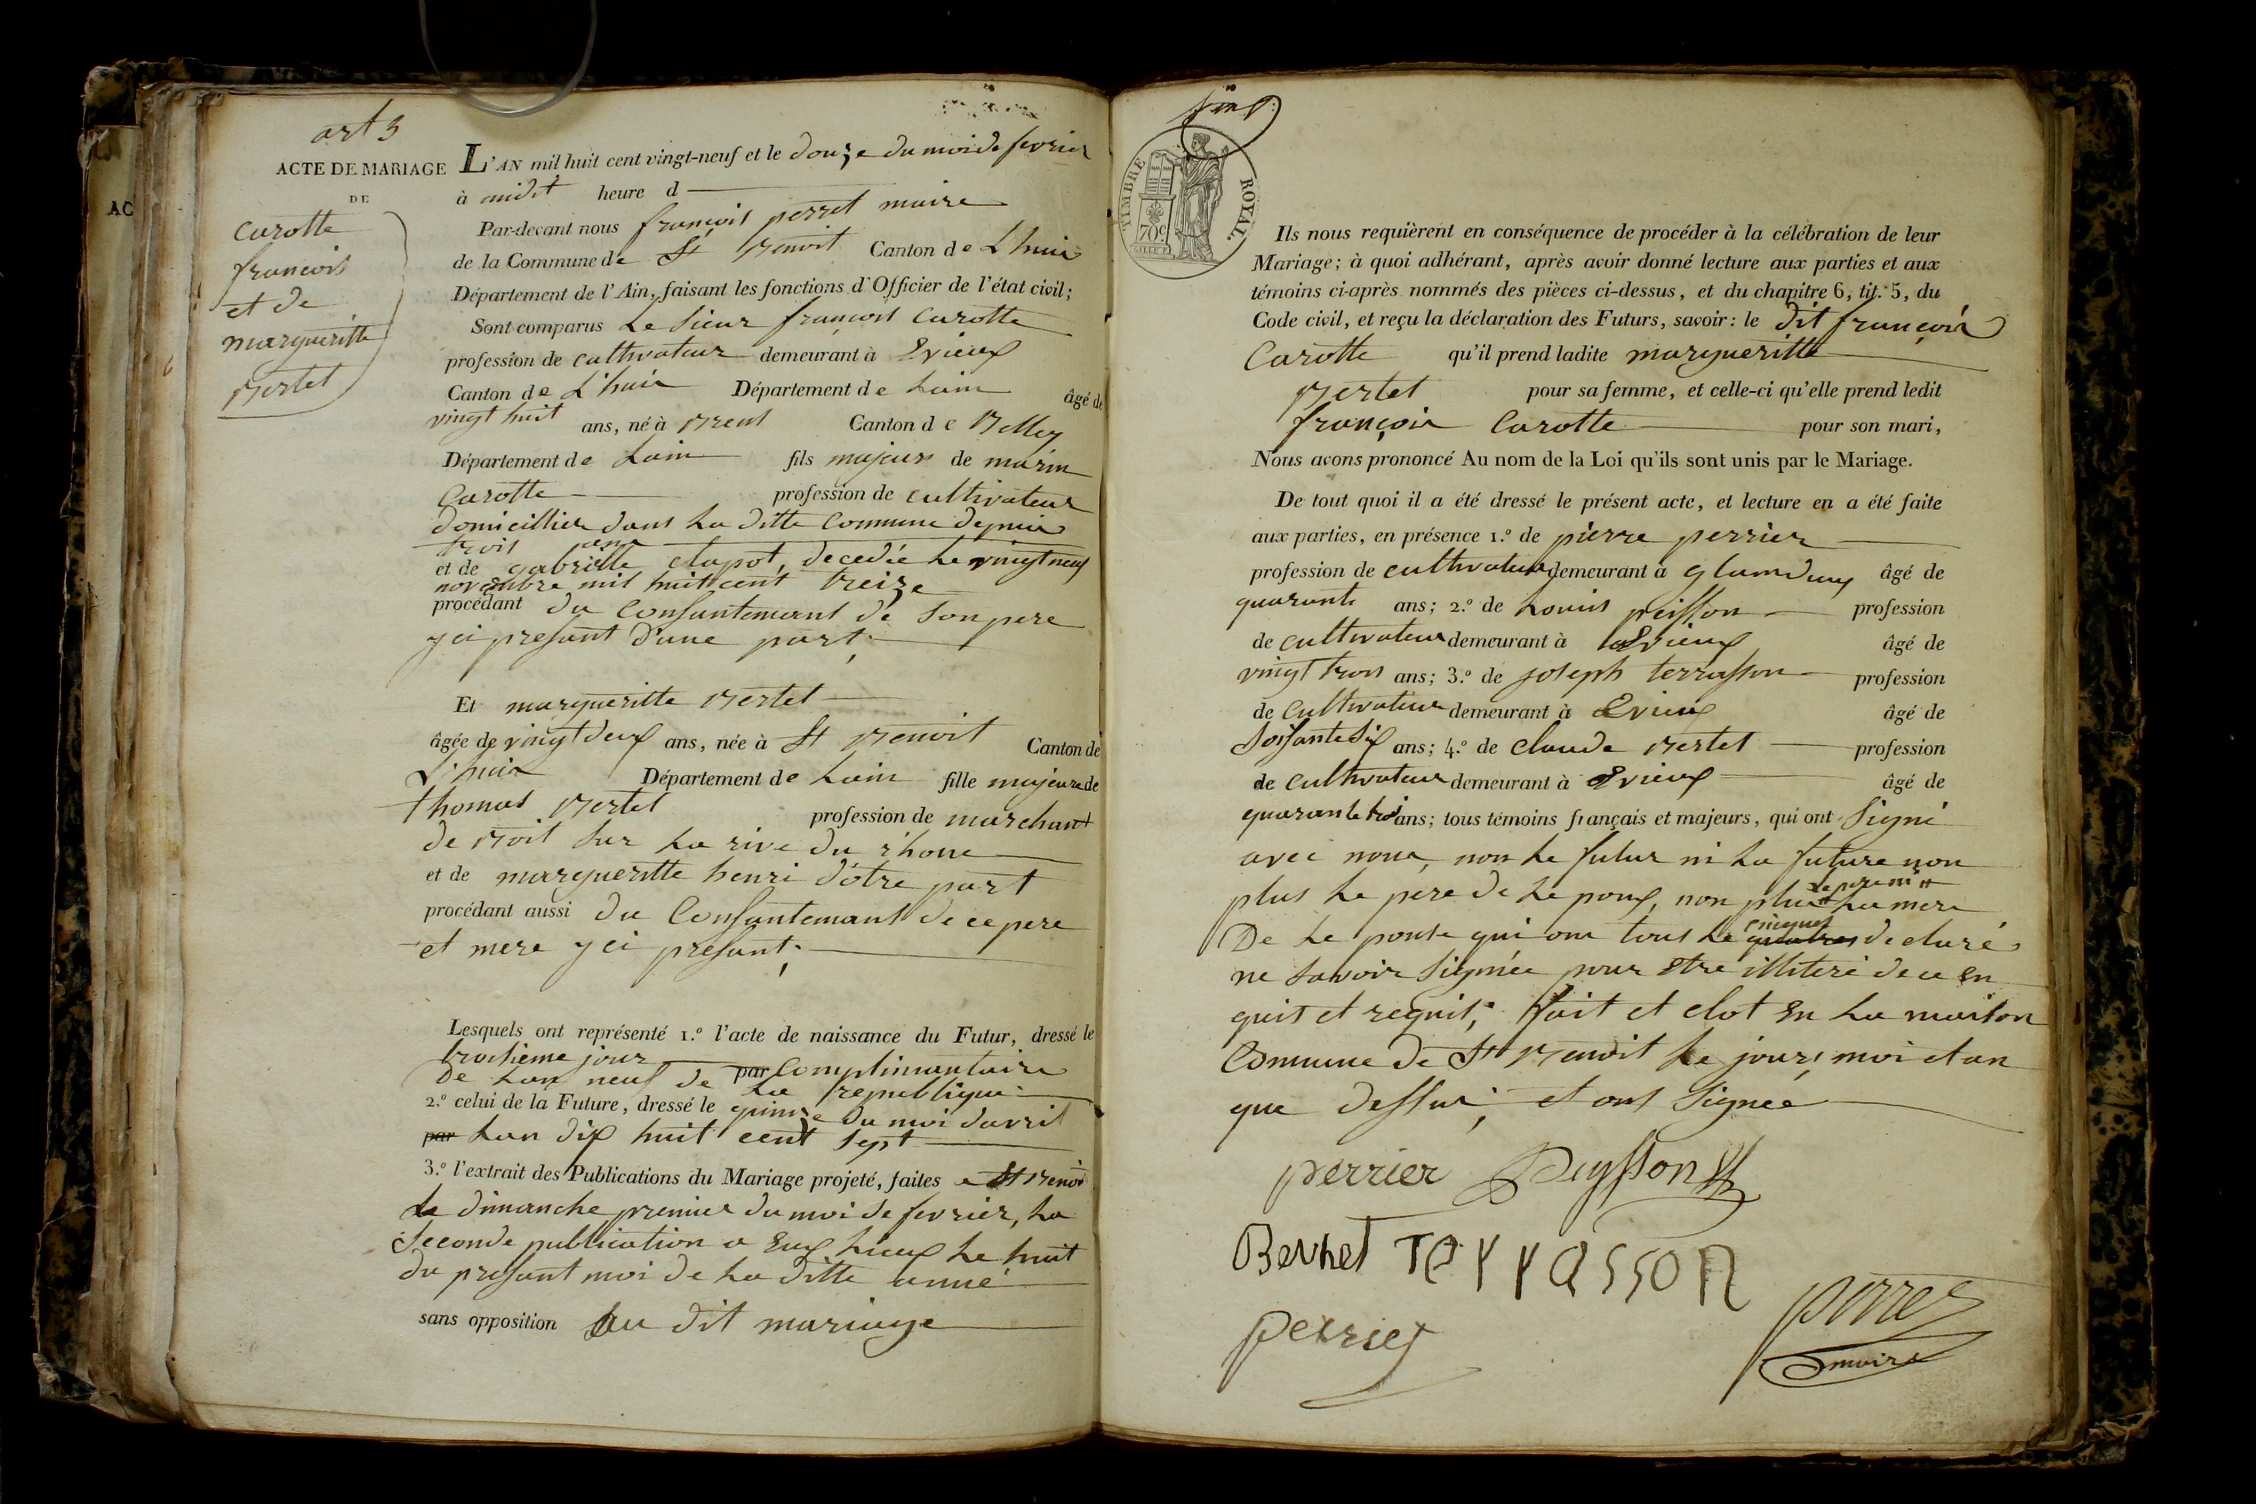 art 3
ACTE DE MARIAGE
DE
Carotte
francois
et de
margueritte
Bertet
AC
L'AN mil huit cent vingt-neuf et le douze du moi de fevrier
à midit heure d
Par-devant nous françois perret maire
de la Commune de St Benoit Canton de L'huis
Département de l'Ain, faisant les fonctions d'Officier de l'état civil;
Sont comparus Le Sieur françois Carotte
profession de cultivateur demeurant à Evieux
Canton de L'huis Département de Lain âgé de
vingt huit ans, né à Brens Canton de Belley
Département de Lain fils majeur de marin
Carotte profession de cultivateur
domicillier dans La ditte Commune depuis
trois ans
et de gabrielle clapot, decedée Le vingt neuf
novembre mil huit cent treize
procédant du Consantemant de son pere
y ci presant d'une part;
Et margueritte Bertet
âgée de vingt deux ans, née à St Benoit Canton de
L'huis Département de Lain fille majeure de
thomas Bertet profession de marchant
de Boit sur La rive du rhone
et de margueritte henri d'otre part
procédant aussi du Consantemant de ce pere
et mere y ci presant;
Lesquels ont représenté 1.º l'acte de naissance du Futur, dressé le
troisieme jour par Complimantaire
De Lan neuf de La republique
2.º celui de la Future, dressé le quinze du moi davril
par Lan dix huit cent sept
3.º l'extrait des Publications du Mariage projeté, faites a St Benoit
Le dimanche premier du moi de fevrier, La
Seconde publication a Eux Lieux Le huit
du presant moi de La ditte anné
sans opposition Au dit mariage
TIMBRE ROYAL
70c
Ils nous requièrent en conséquence de procéder à la célébration de leur
Mariage; à quoi adhérant, après avoir donné lecture aux parties et aux
témoins ci-après nommés des pièces ci-dessus, et du chapitre 6, tit. 5, du
Code civil, et reçu la déclaration des Futurs, savoir: le dit françois
Carotte qu'il prend ladite margueritte
Bertet pour sa femme, et celle-ci qu'elle prend ledit
françois Carotte pour son mari,
Nous avons prononcé Au nom de la Loi qu'ils sont unis par le Mariage.
De tout quoi il a été dressé le présent acte, et lecture en a été faite
aux parties, en présence 1.º de pierre perrier
profession de cultivateur demeurant à glandieu âgé de
quarante ans; 2.º de Louis peisson profession
de cultivateur demeurant à Evieux âgé de
vingt trois ans; 3.º de joseph terrasson profession
de Cultivateur demeurant à Evieux âgé de
Soisante Six ans; 4.º de claude Bertet profession
de cultivateur demeurant à Evieux âgé de
quarante trois ans; tous témoins français et majeurs, qui ont Signé
avec nous, non Le futur ni La future non
plus Le pere de Le poux, non plus Le pere ni La mere
De Le pouse qui ons tous Le cinques quatres declaré
ne savoir Signée pour Etre illiteré de ce en
quit et requit; fait et clot En La maison
Commune de St Benoit Le jour, moi et an
que dessus; et ont Signée
perrier Peysson
Bertet Terrasson
perrier
perret
maire